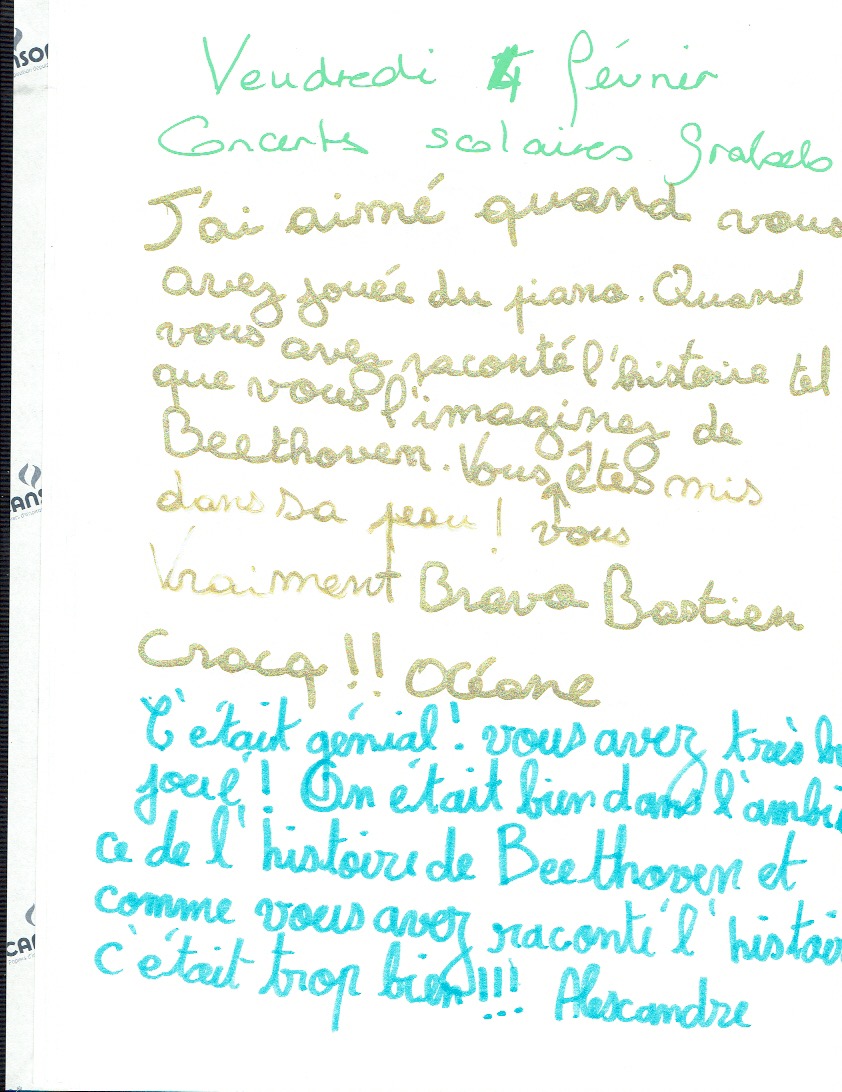 Vendredi 4 février
Concerts scolaires Grabels
J'ai aimé quand vous
avez jouée du piano. Quand
vous avez raconté l'histoire tel
que vous l'imaginez de
Beethoven. Vous êtes mis
dans sa peau ! vous
Vraiment Bravo Bastien
Crocq !! Océane
C'était génial ! vous avez très b
joué ! On était bien dans l'ambi
ce de l'histoire de Beethoven et
comme vous avez raconté l'histoir
c'était trop bien !!! Alescandre